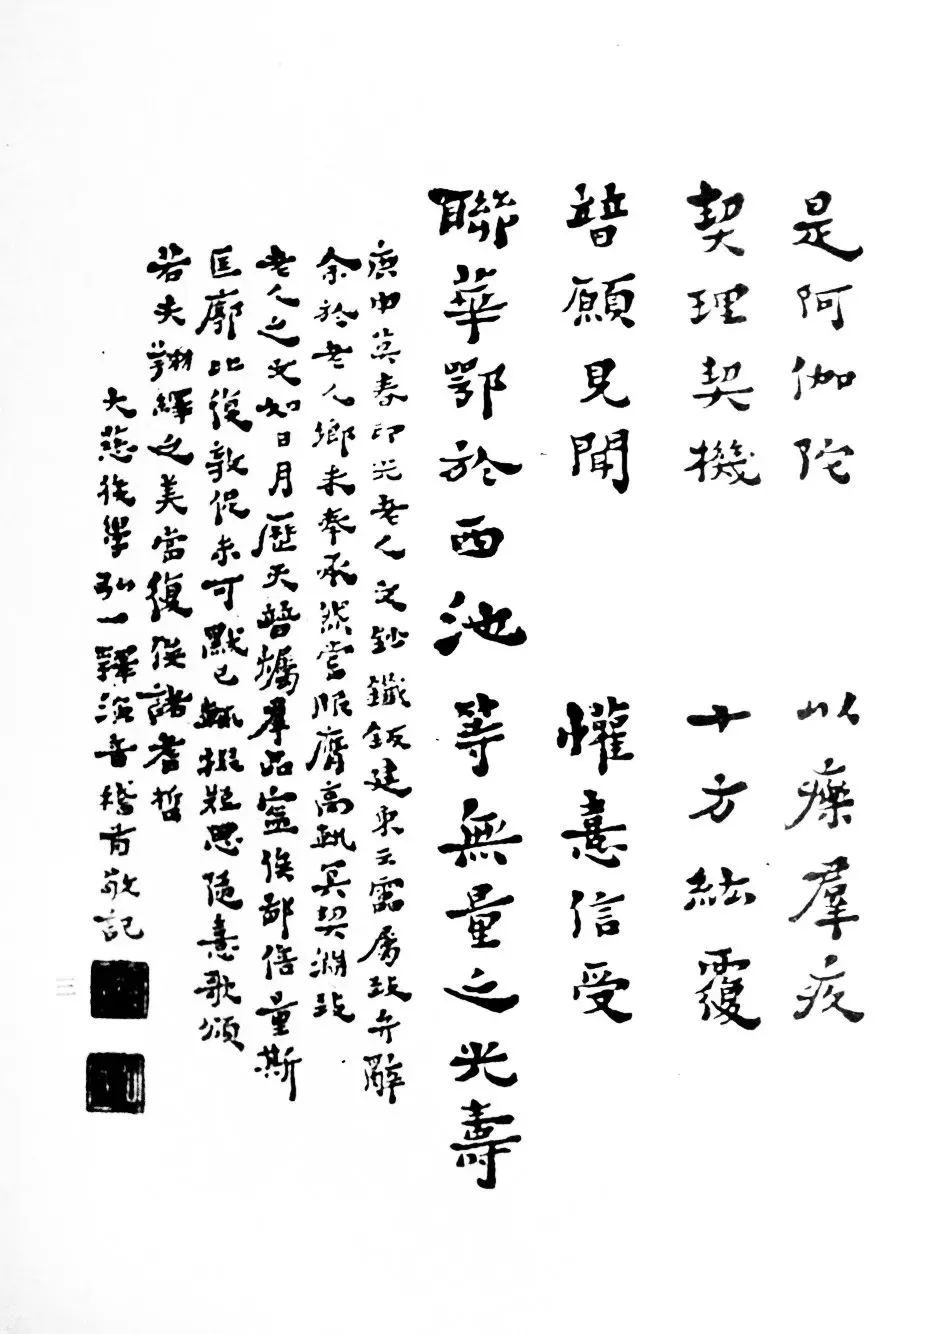 是阿伽陀　以療羣疚
契理契機　十方紘覆
普願見聞　懽憙信受
聯華鄂於西池　等無量之光壽
庚申莫春印光老人文鈔鐫鈑建東云雷屬致弁辭
余於老人鄉未奉承然嘗服膺高軌冥契淵致
老人之文如日月歷天普爥羣品寧俟鄙倍量斯
匡廓比復敦促未可默已輒掇短思隨憙歌頌
若夫翔繹之美當復俟諸耆哲
大慈後學弘一釋演音稽首敬記
三